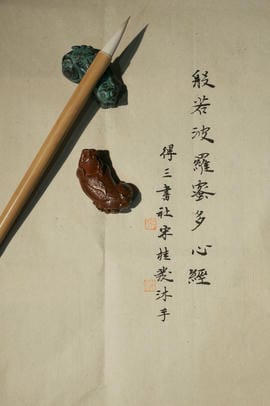 般若波羅蜜多心經
得三書社宋桂㦮沐手